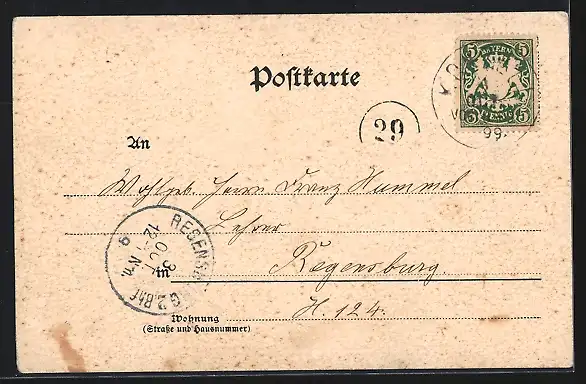 5 BAYERN 5
5 PFENNIG 5
Postkarte
99.
29
An
Wohlgeb. Herrn Franz Hummel
Lehrer
in Regensburg.
H. 124.
REGENSB G 2. Bhf
3 OCT
12 Nm
9
Wohnung
(Straße und Hausnummer)